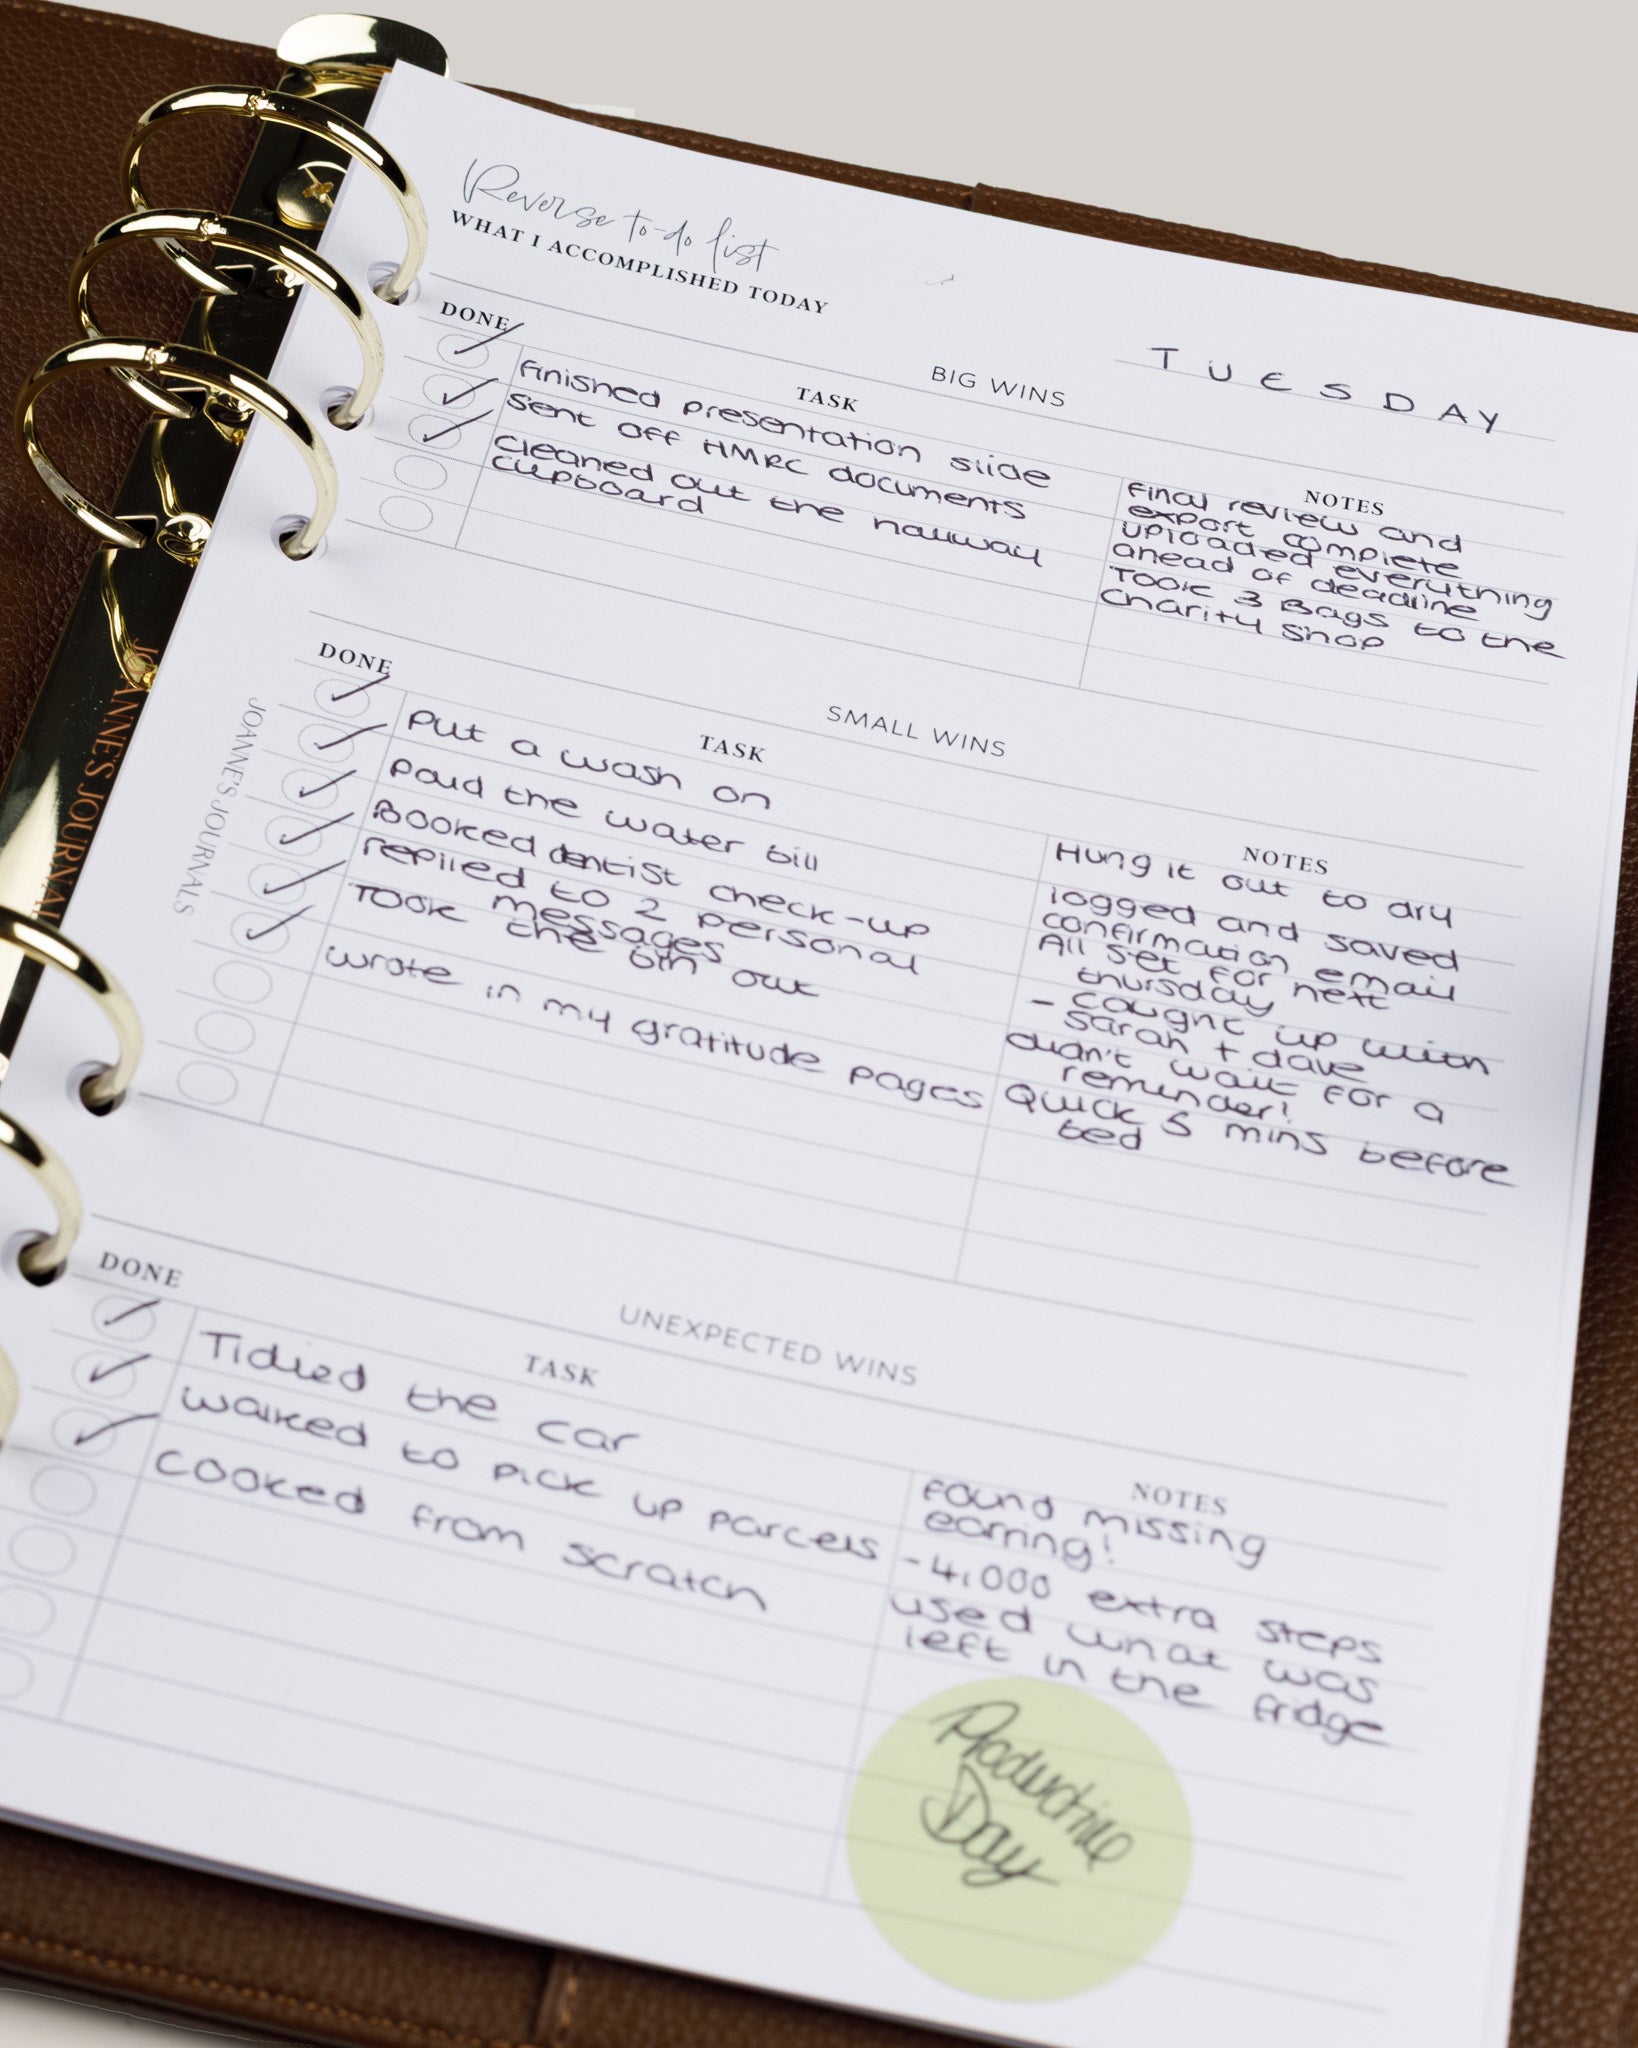 Reverse to-do list
WHAT I ACCOMPLISHED TODAY
TUESDAY
BIG WINS
DONE
TASK
NOTES
Finished presentation slide
Final review and
export complete
Sent off HMRC documents
uploaded everything
ahead of deadline
Cleaned out the hallway
cupboard
Took 3 Bags to the
charity shop
SMALL WINS
DONE
TASK
NOTES
Put a wash on
Hung it out to dry
Paid the water bill
logged and saved
confirmation email
Booked dentist check-up
All set for next
thursday
replied to 2 personal
messages
- caught up with
Sarah + dave
Took the bin out
didn't wait for a
reminder!
wrote in my gratitude pages
Quick 5 mins before
bed
UNEXPECTED WINS
DONE
TASK
NOTES
Tidied the car
found missing
earring!
walked to pick up parcels
- 4,000 extra steps
cooked from scratch
used what was
left in the fridge
Productive
Day
JOANNE'S JOURNALS
JOANNE'S JOURNAL